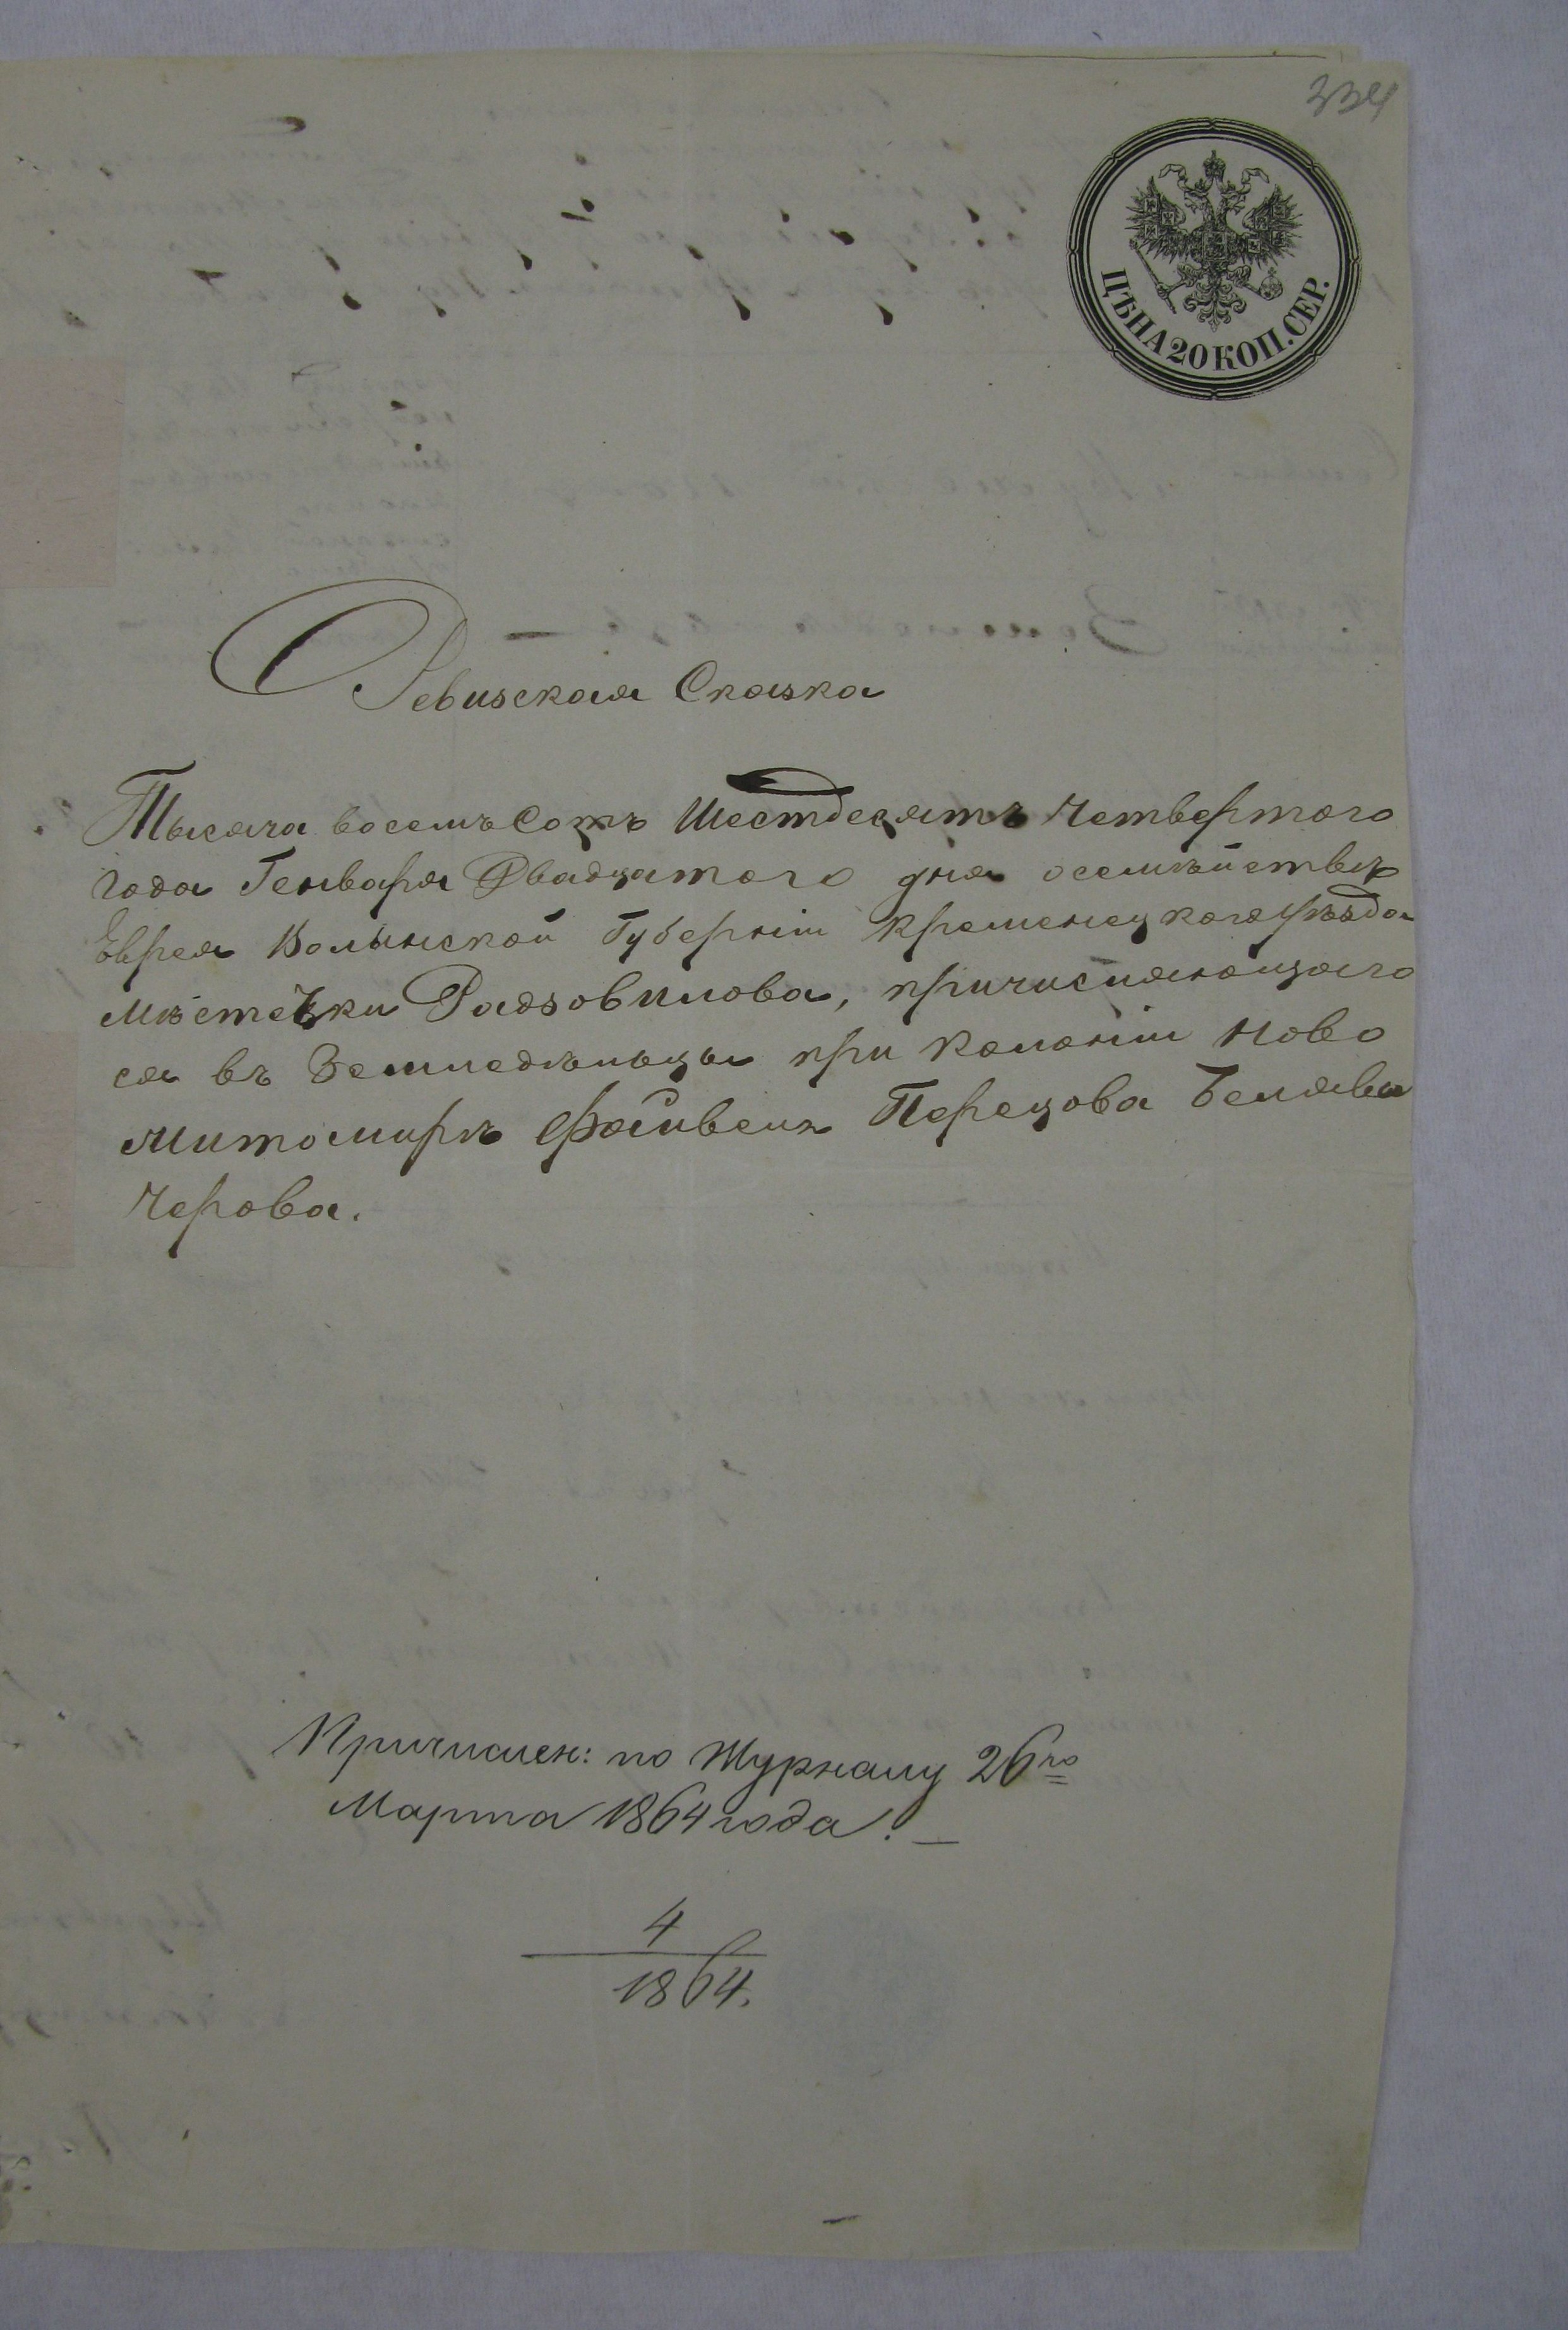 334
ЦѢНА 20 КОП. СЕР.
Ревизская Сказка
Тысяча восемъ Сотъ Шестдесятъ Четвертого
года Генваря Двадцатого дня осемѣйствѣ
Еврея Волынской Губерніи Кременецкого уѣзда
мѣстечки Радзовилова, причисляющаго
ся въ Земледѣльцы при Калоніи Ново
житомирѣ Файвеля Перецова Беляв
черова.
Причислен: по Журналу 26го
Марта 1864 года. —
4
1864.